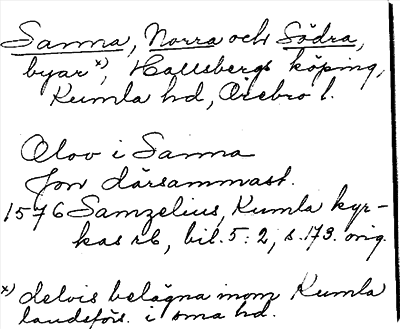 Sanna, Norra och Södra,
byar x), Hallsbergs köping,
Kumla hd, Örebro l.
Olov i Sanna
Jon därsammast.
1576 Samzelius, Kumla kyr-
kas rb, bil. 5:2, s. 173. orig.
x) delvis belägna inom Kumla
landsförs. i sma hd.